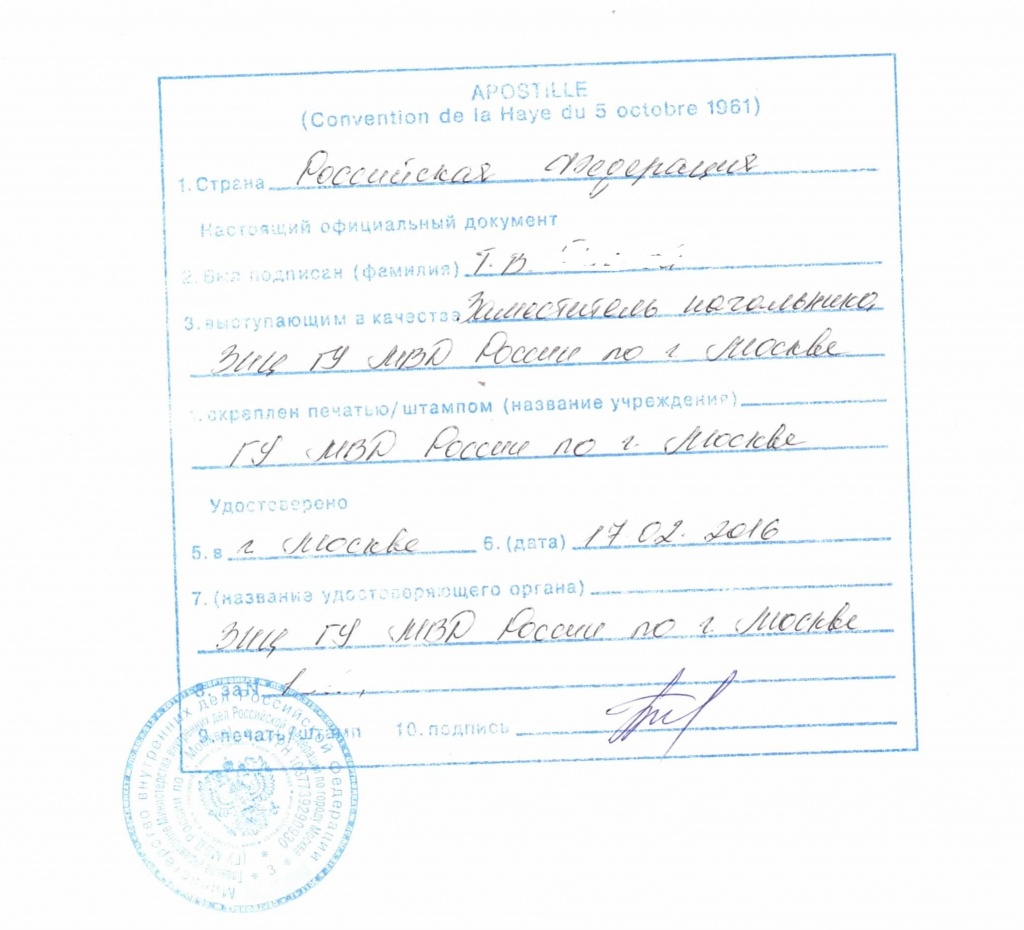 APOSTILLE
(Convention de la Haye du 5 octobre 1961)
1. Страна Российская Федерация
Настоящий официальный документ
2. был подписан (фамилия) Т.В.
3. выступающим в качестве Заместитель начальника
ЗИЦ ГУ МВД России по г. Москве
скреплен печатью/штампом (название учреждения)
ГУ МВД России по г. Москве
Удостоверено
5. в г. Москве 6. (дата) 17.02.2016
7. (название удостоверяющего органа)
ЗИЦ ГУ МВД России по г. Москве
8. за N
9. печать/штамп 10. подпись
Министерство внутренних дел Российской Федерации
Главное управление Министерства внутренних дел Российской Федерации по городу Москве
* 3 *